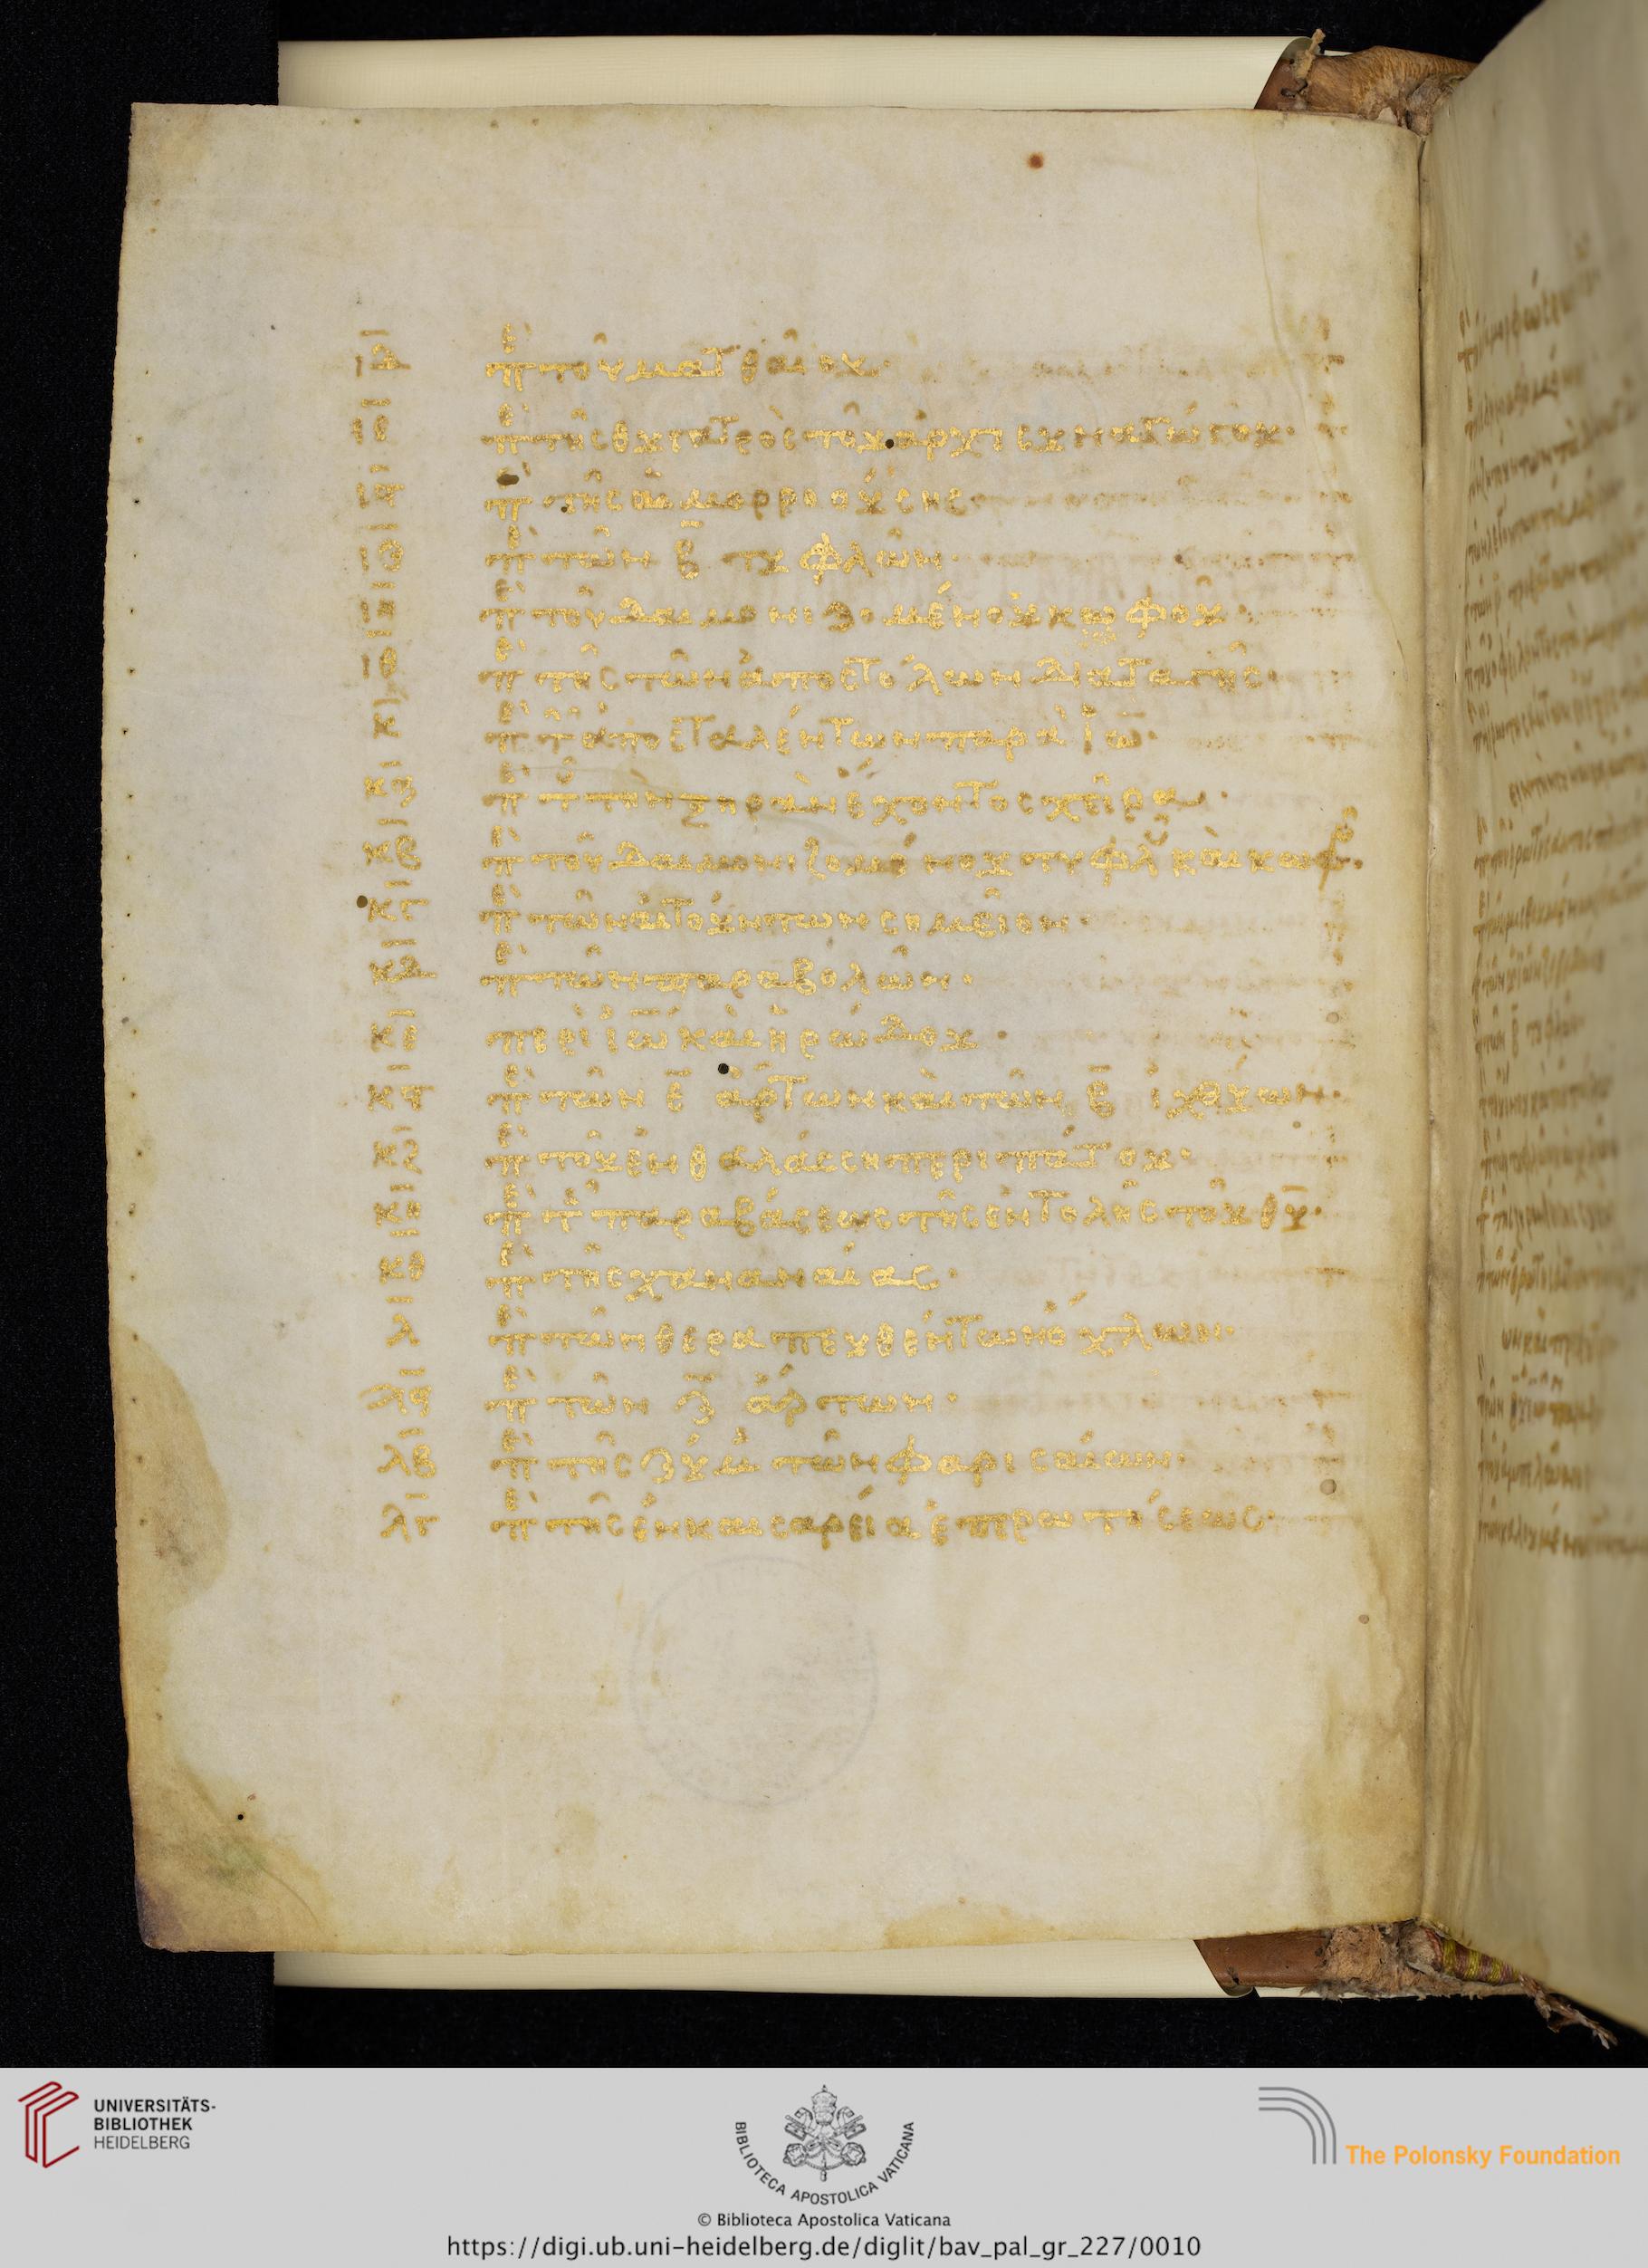 ιδ πὲ τοῦ ματθαίου·
ιε πὲ τῆς θυγατρὸς τοῦ ἀρχισυναγώγου·
ις πὲ τῆς αἱμορροούσης·
ιζ πὲ τῶν β̅ τυφλῶν·
ιη πὲ τοῦ δαιμονιζομένου κωφοῦ·
ιθ πὲ τῆς τῶν ἀποστόλων διαταγῆς·
κ πὲ τῶν ἀποσταλέντων παρὰ ἰω̅·
κα πὲ τοῦ τὴν ξηρὰν ἔχοντος χεῖρα·
κβ πὲ τοῦ δαιμονιζομένου τυφλοῦ καὶ κωφοῦ·
κγ πὲ τῶν αἰτούντων σημεῖον·
κδ πὲ τῶν παραβολῶν·
κε περὶ ἰω̅ καὶ ἡρώδου·
κς πὲ τῶν ε̅ ἄρτων καὶ τῶν β̅ ἰχθύων·
κζ πὲ τοῦ ἐν θαλάσση περιπάτου·
κη πὲ τῆς παραβάσεως τῆς ἐντολῆς τοῦ θυ̅·
κθ πὲ τῆς χαναναίας·
λ πὲ τῶν θεραπευθέντων ὄχλων·
λα πὲ τῶν ζ̅ ἄρτων·
λβ πὲ τῆς ζύμ τῶν φαρισαίων·
λγ πὲ τῆς ἐν καισαρεία ἐπερωτήσεως·
UNIVERSITÄTS-
BIBLIOTHEK
HEIDELBERG
BIBLIOTECA APOSTOLICA VATICANA
The Polonsky Foundation
© Biblioteca Apostolica Vaticana
https://digi.ub.uni-heidelberg.de/diglit/bav_pal_gr_227/0010